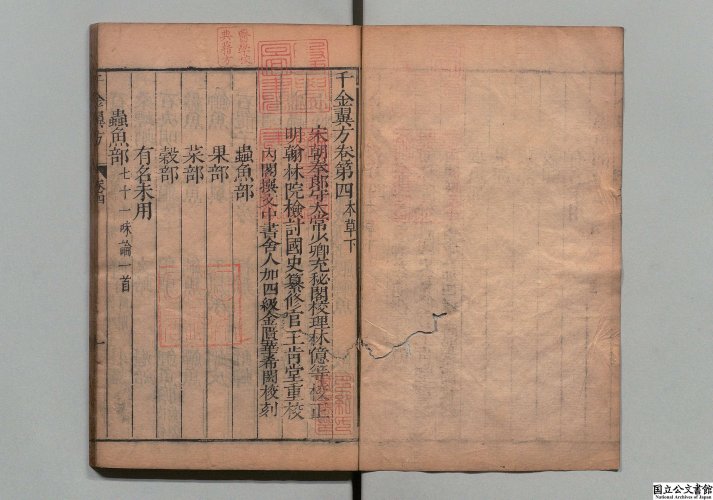 千金翼方卷第四 本草下
宋朝奉郎守太常少卿充秘閣校理林億等校正
明翰林院檢討國史纂修官王肯堂重校
內閣撰文中書舍人加四級金匱華希閎梭刻
蟲魚部
果部
菜部
穀部
有名未用
蟲魚部 七十一味論一首
千金翼方 卷四
国立公文書館
National Archives of Japan